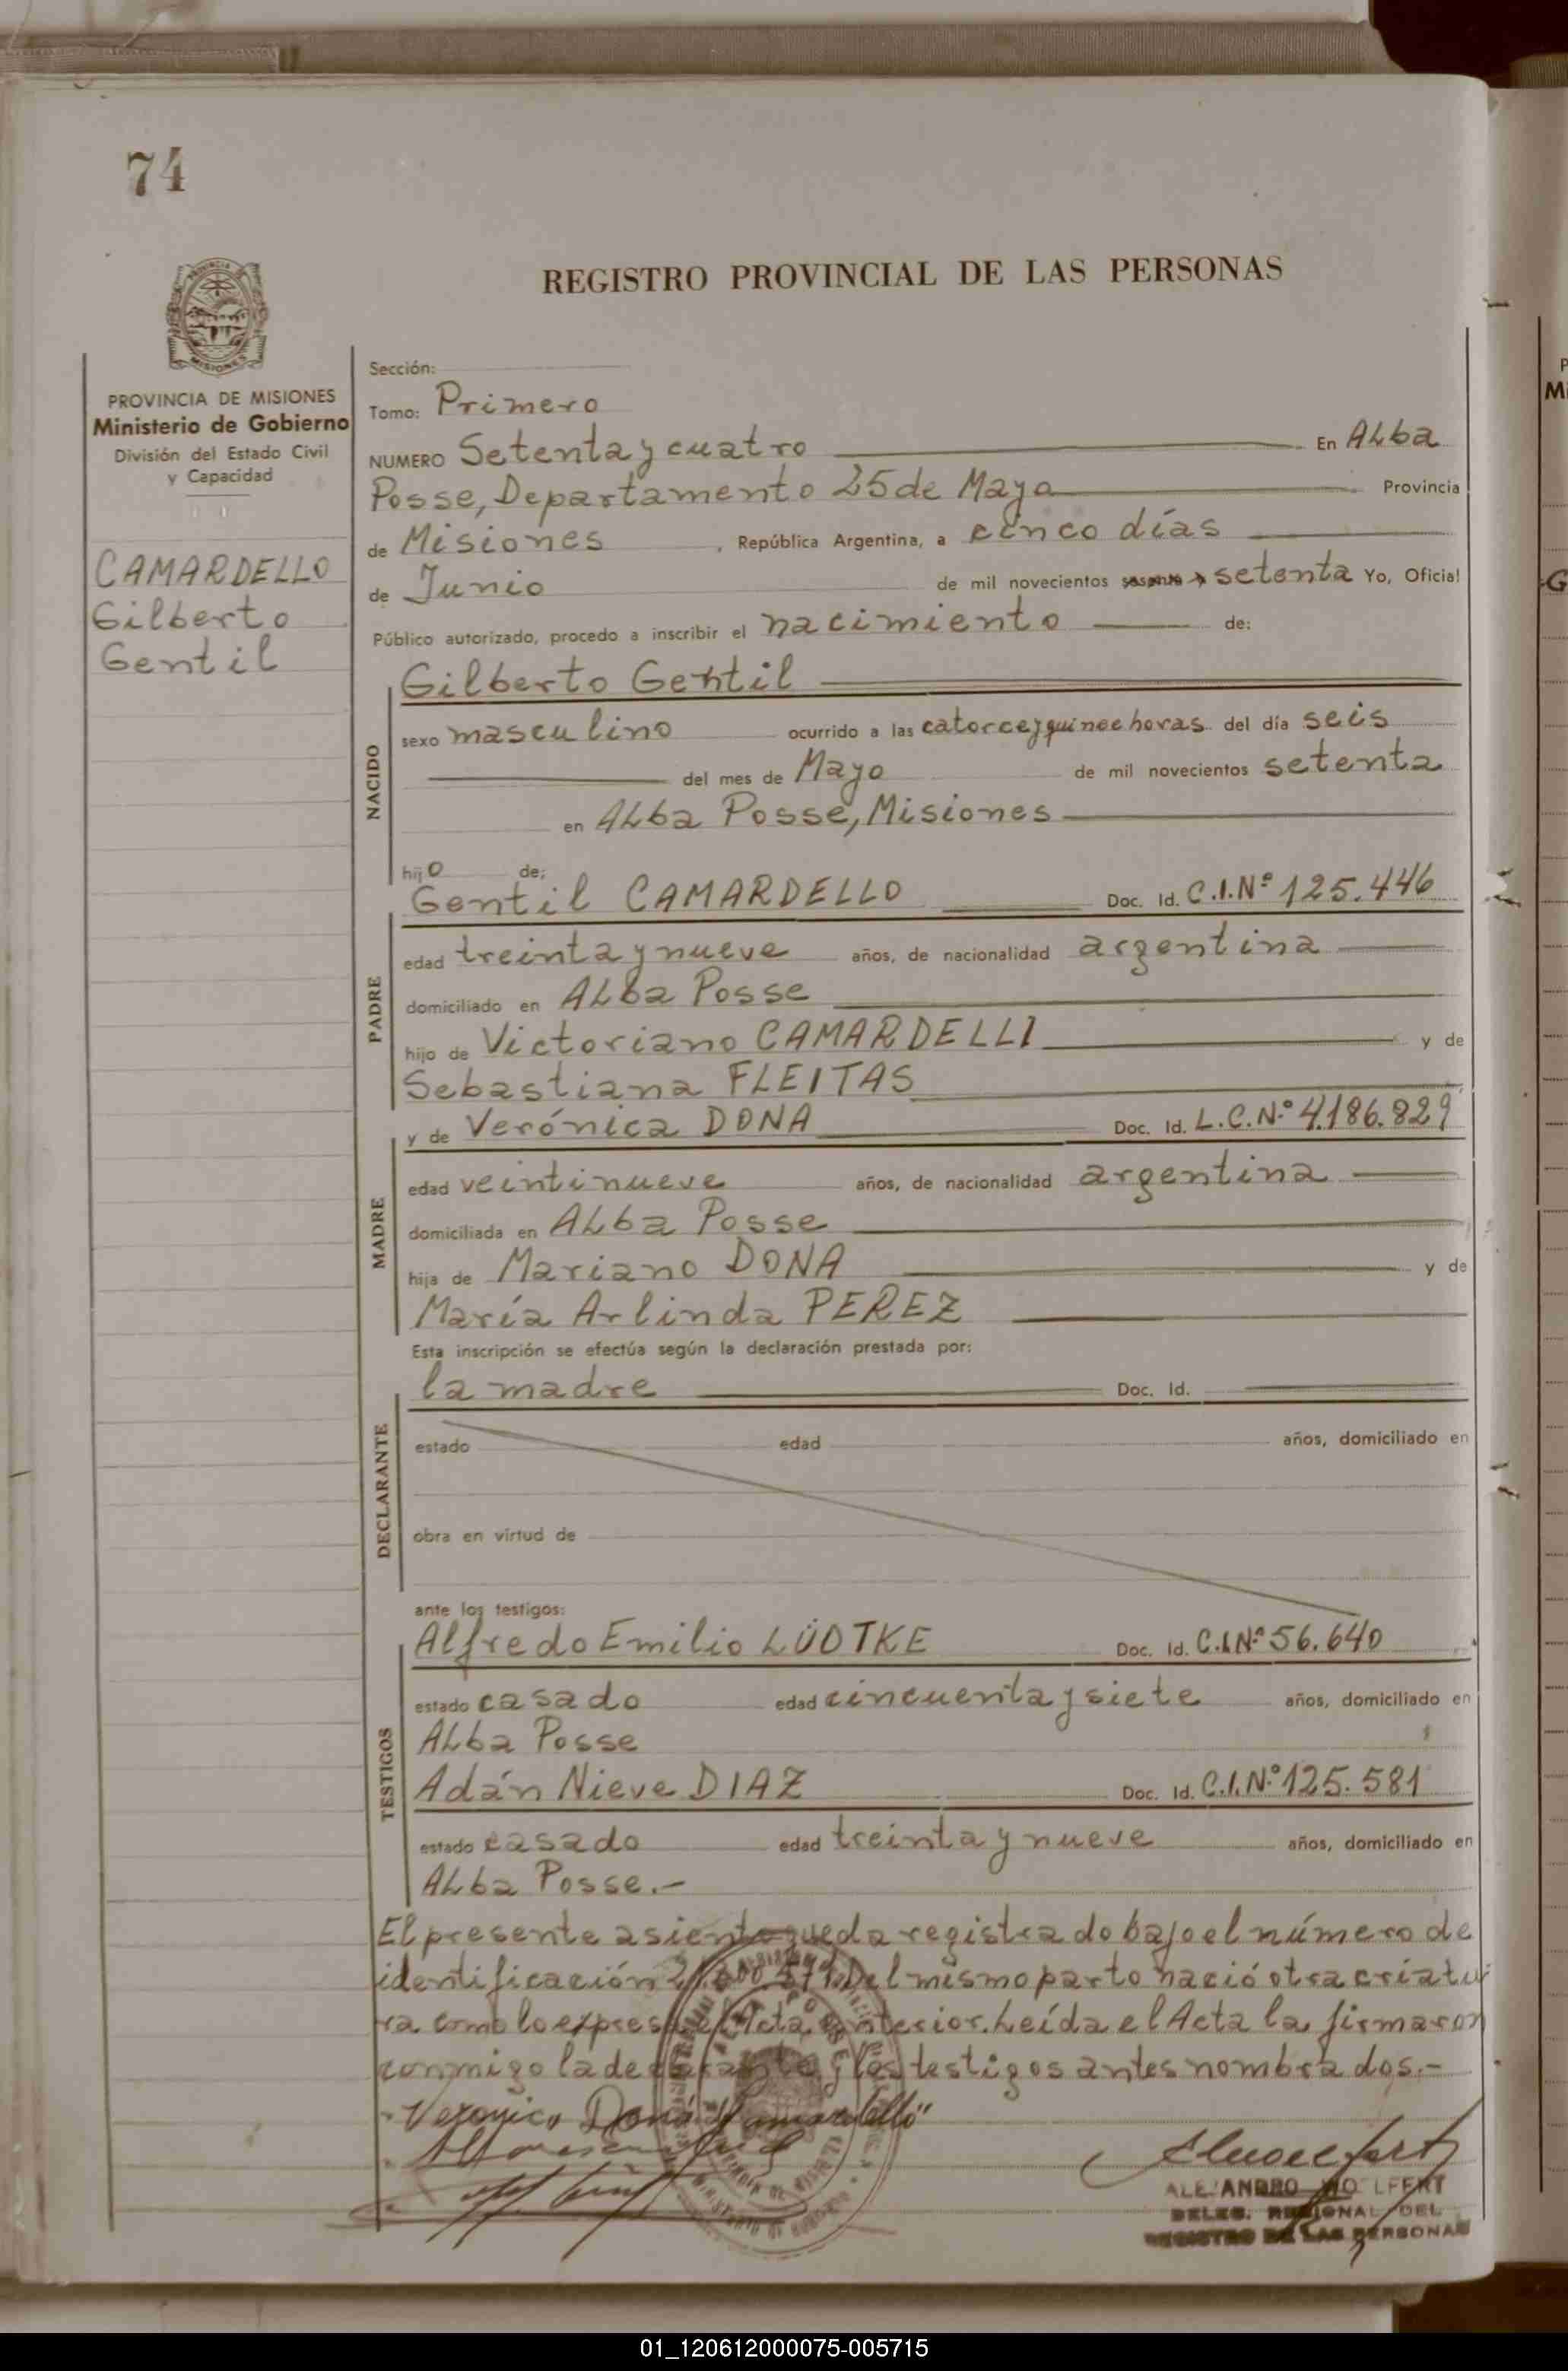 74
PROVINCIA DE
MISIONES
PROVINCIA DE MISIONES
Ministerio de Gobierno
División del Estado Civil
y Capacidad
CAMARDELLO
Gilberto
Gentil
REGISTRO PROVINCIAL DE LAS PERSONAS
Sección:
Tomo: Primero
NUMERO Setenta y cuatro En Alba
Posse, Departamento 25 de Mayo Provincia
de Misiones, República Argentina, a cinco días
de Junio de mil novecientos setenta Yo, Oficial
Público autorizado, procedo a inscribir el nacimiento de:
Gilberto Gentil
NACIDO
sexo masculino ocurrido a las catorce y quince horas del día seis
del mes de Mayo de mil novecientos setenta
en Alba Posse, Misiones
hijo de:
Gentil CAMARDELLO Doc. Id. C.I.Nº 125.446
PADRE
edad treinta y nueve años, de nacionalidad argentina
domiciliado en Alba Posse
hijo de Victoriano CAMARDELLI y de
Sebastiana FLEITAS
y de Verónica DONA Doc. Id. L.C.N.º 4.186.829
MADRE
edad veintinueve años, de nacionalidad argentina
domiciliada en Alba Posse
hija de Mariano DONA y de
María Arlinda PEREZ
Esta inscripción se efectúa según la declaración prestada por:
la madre Doc. Id.
DECLARANTE
estado edad años, domiciliado en
obra en virtud de
ante los testigos:
Alfredo Emilio LÜDTKE Doc. Id. C.I.Nº 56.640
TESTIGOS
estado casado edad cincuenta y siete años, domiciliado en
Alba Posse
Adán Nieve DIAZ Doc. Id. C.I.N.º 125.581
estado casado edad treinta y nueve años, domiciliado en
Alba Posse.-
El presente asiento queda registrado bajo el número de
identificación Del mismo parto nació otra criatu
ra como lo expresa el Acta anterior. Leída el Acta la firmaron
conmigo la declarante y los testigos antes nombrados.-
Veronica Dona
ALEJANDRO WOLFFERT
DELEG. REGIONAL DEL
REGISTRO DE LAS PERSONAS
01_120612000075-005715